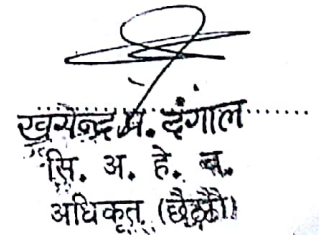 खगेन्द्र प्र. दंगाल
सि. अ. हे. ब.
अधिकृत (छैठौं)